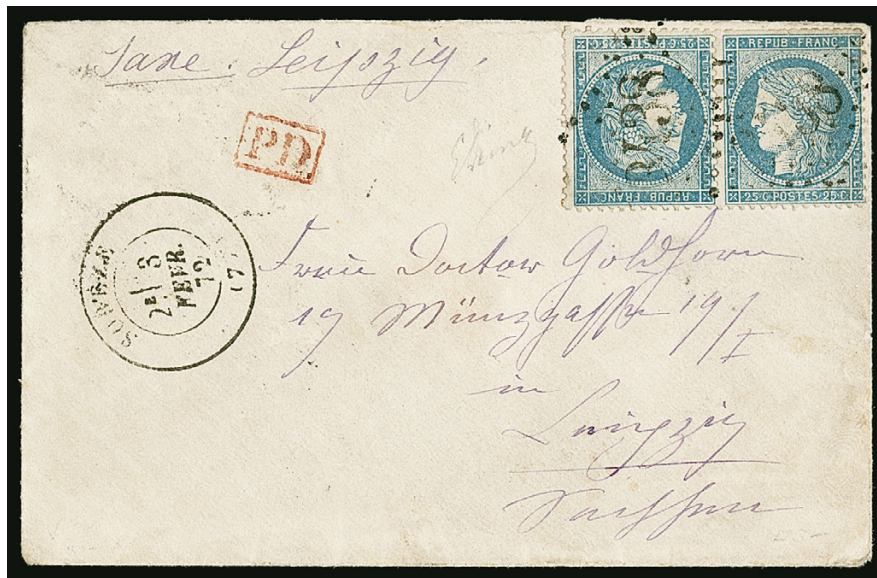 Saxe. Leipzig.
REPUB. FRANC.
25 C POSTES 25 C
REPUB. FRANC.
25 C POSTES 25 C
PD
SORÈZE
2E/ 3
FEVR.
72
Frau Doctor Goldhorn
19 Münzgasse 19/I
in
Leipzig
Sachsen